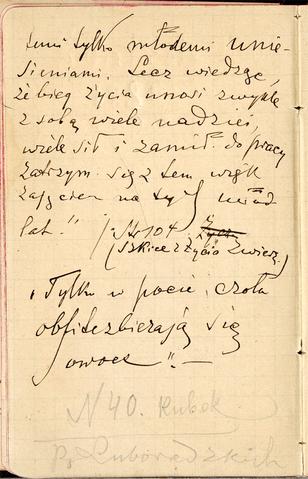 temi tylko młodemi unie-
sieniami. Lecz wiedząc,
że bieg życia unosi zwykle
z sobą wiele nadziei,
wiele sił i zamił. do pracy
zatrzym. się z tem
na lat."
Str 104
(Szkice z życia zwierz.)
"Tylko w pocie czoła
obficie zbierają się
owoce". —
N 40. Kubek
Pp Luboradzkich